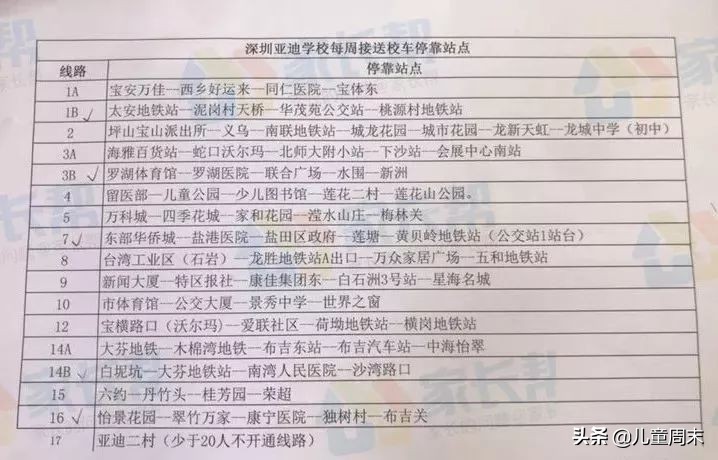 深圳亚迪学校每周接送校车停靠站点
线路 停靠站点
1A 宝安万佳—西乡好运来—同仁医院—宝体东
1B 太安地铁站—泥岗村天桥—华茂苑公交站—桃源村地铁站
2 坪山宝山派出所—义乌—南联地铁站—城龙花园—城市花园—龙新天虹—龙城中学（初中）
3A 海雅百货站—蛇口沃尔玛—北师大附小站—下沙站—会展中心南站
3B 罗湖体育馆—罗湖医院—联合广场—水围—新洲
4 留医部—儿童公园—少儿图书馆—莲花二村—莲花山公园。
5 万科城—四季花城—家和花园—滢水山庄—梅林关
7 东部华侨城—盐港医院—盐田区政府—莲塘—黄贝岭地铁站（公交站1站台）
8 台湾工业区（石岩）—龙胜地铁站A出口—万众家居广场—五和地铁站
9 新闻大厦—特区报社—康佳集团东—白石洲3号站—星海名城
10 市体育馆—公交大厦—景秀中学—世界之窗
12 宝横路口（沃尔玛)—爱联社区—荷坳地铁站—横岗地铁站
14A 大芬地铁—木棉湾地铁—布吉东站—布吉汽车站—中海怡翠
14B 白坭坑—大芬地铁站—南湾人民医院—沙湾路口
15 六约—丹竹头—桂芳园—荣超
16 怡景花园—翠竹万家—康宁医院—独树村—布吉关
17 亚迪二村（少于20人不开通线路）
头条 @儿童周末